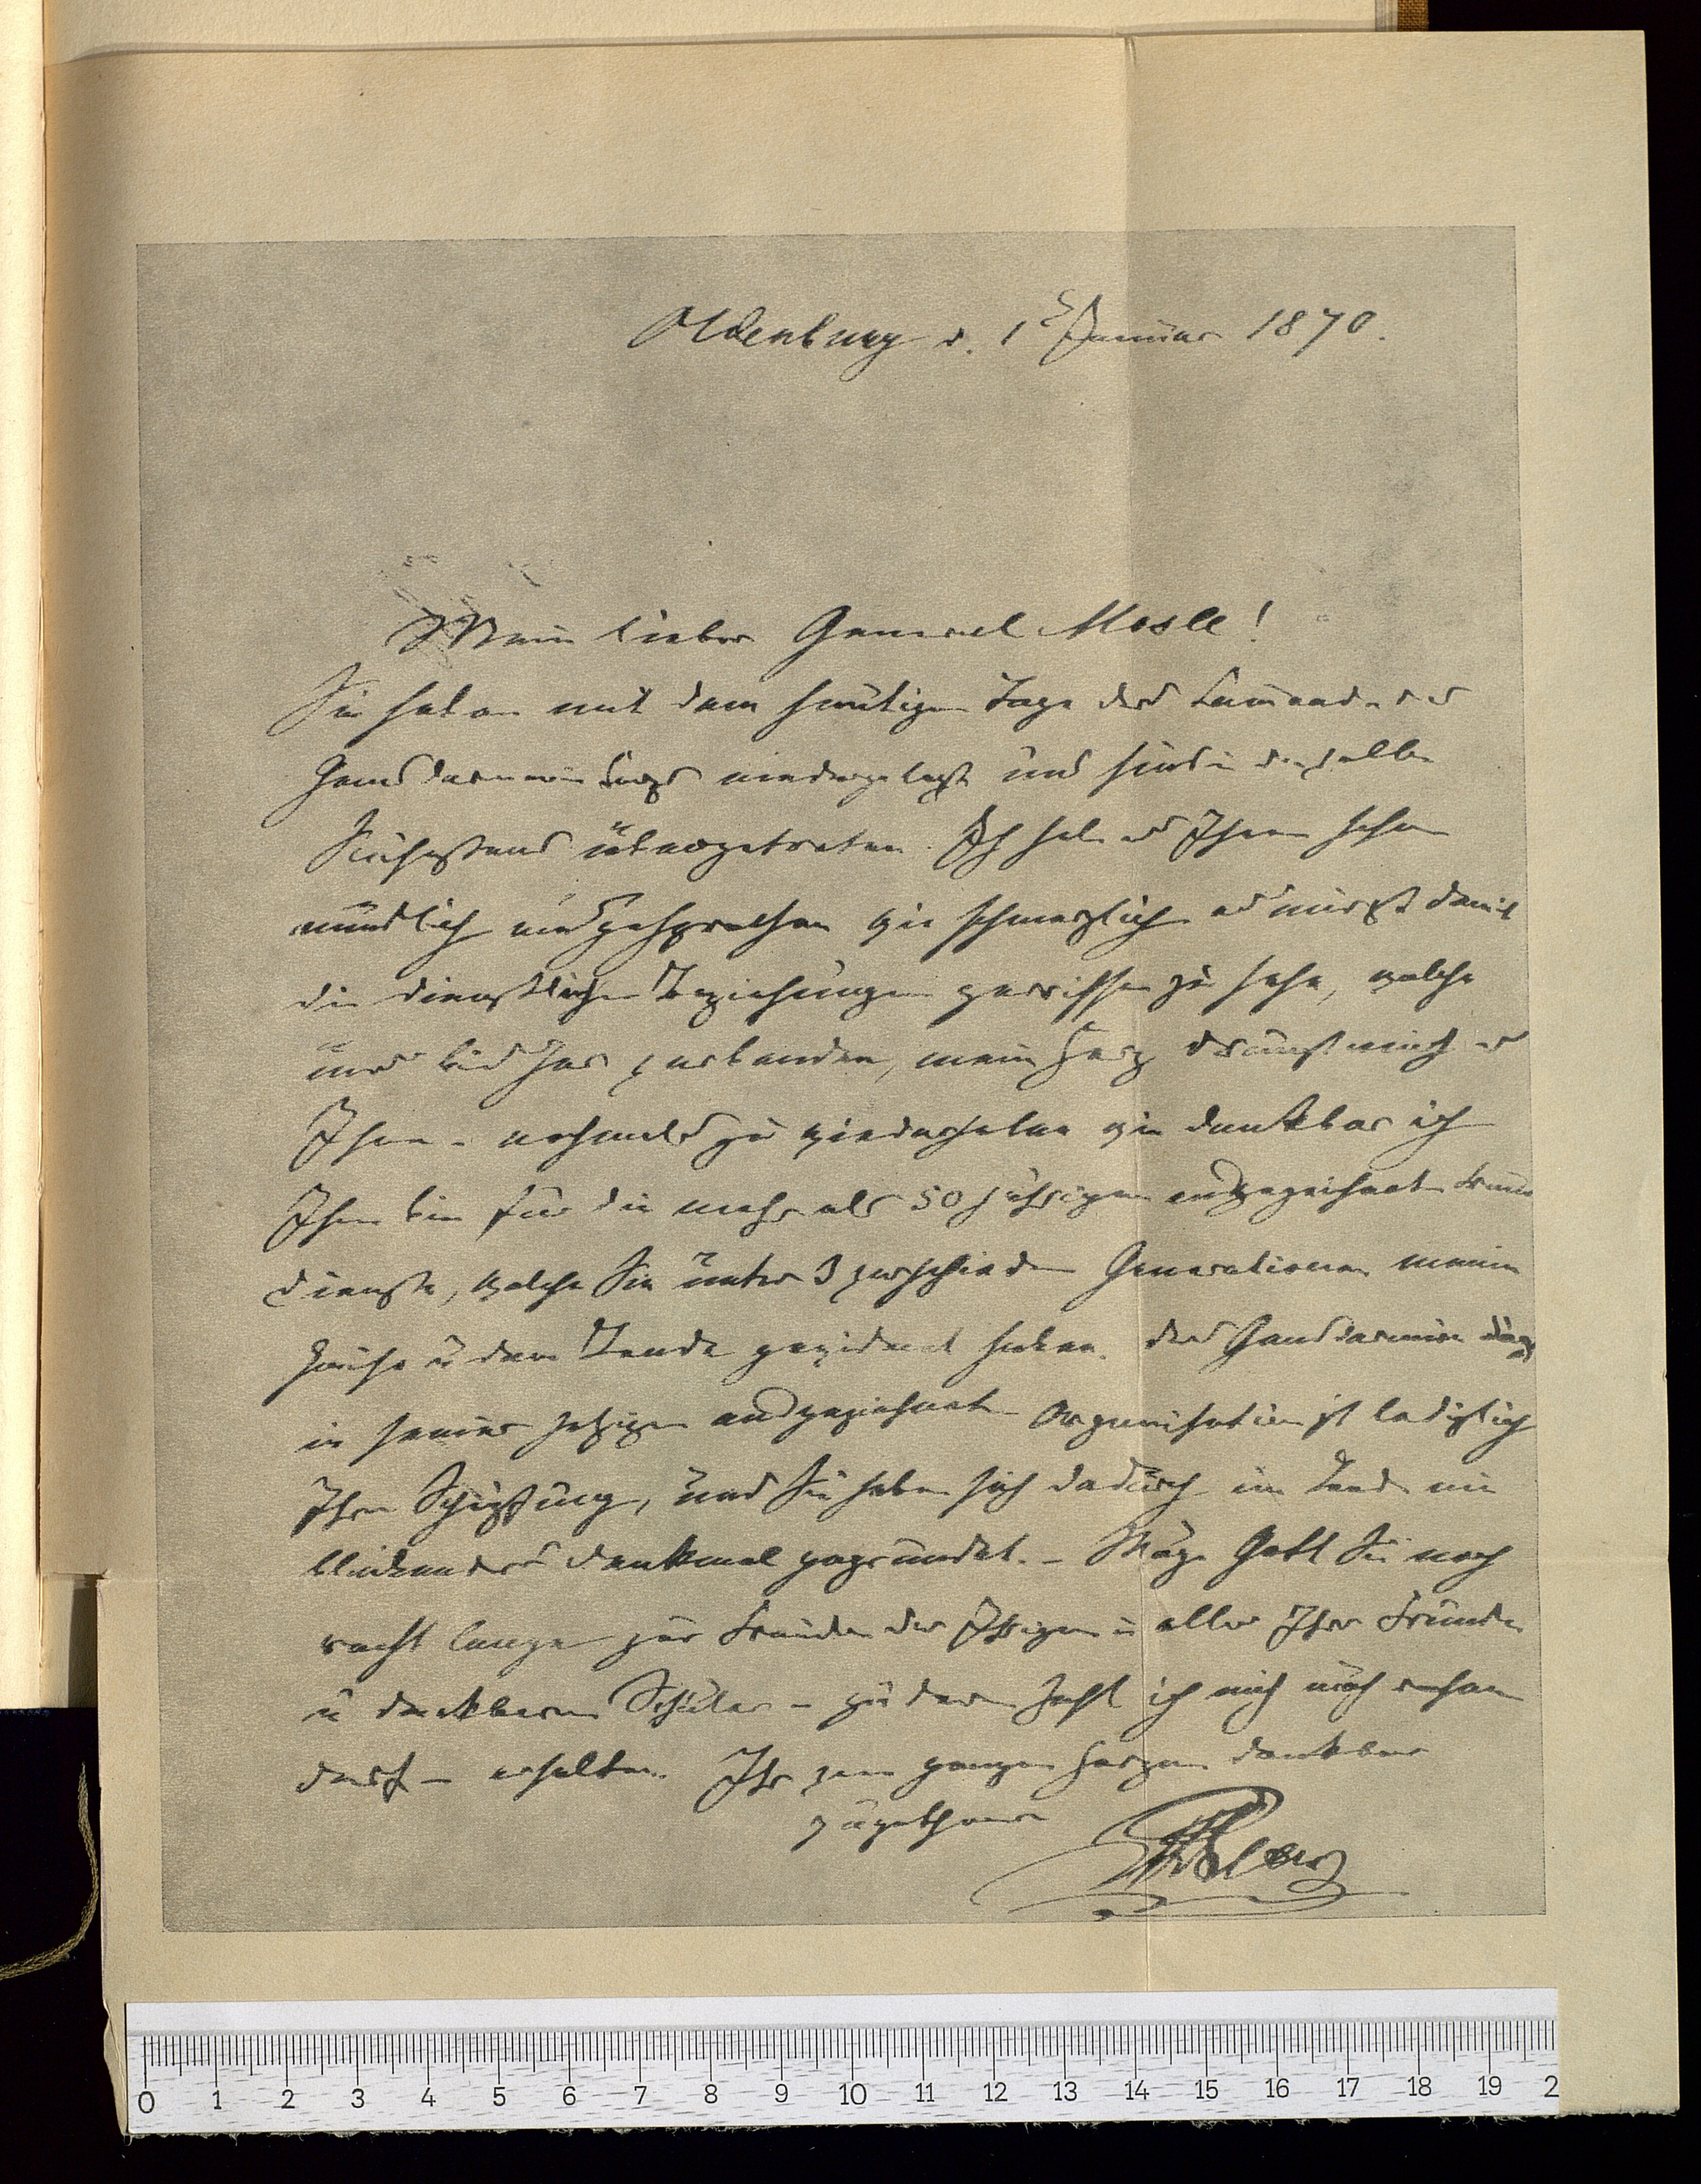 Oldenburg d. 1 Januar 1870.
Mein lieber General Mosle!
Sie haben mit dem heutigen Tage das Commando des
Gensdarmerie Corps niedergelegt und sind in denselben
Ruhestand übergetreten. Ich habe es Ihnen schon
mündlich ausgesprochen wie schmerzlich es mir ist damit
die dienstlichen Beziehungen zerrissen zu sehn, welche
uns bisher verbanden, mein Herz drängt mich es
Ihnen nochmals zu wiederholen wie dankbar ich
Ihnen bin für die mehr als 50 jährigen ausgezeichneten treuen
Dienste, welche Sie unter 3 verschiedenen Generationen meines
Hauses u dem Lande gewidmet haben. Das Gensdarmerie Corps
in seiner jetzigen ausgezeichneten Organisation ist lediglich
Ihre Schöpfung, und Sie haben sich dadurch im Lande ein
bleibendes Denkmal gegründet. – Möge Gott Sie noch
recht lange zur Freude der Ihrigen u aller Ihrer Freunde
u dankbaren Schüler – zu denen ich mich auch rechnen
darf – erhalten. Ihr von ganzem Herzen dankbar
zugethaner
Peter
0 1 2 3 4 5 6 7 8 9 10 11 12 13 14 15 16 17 18 19 2